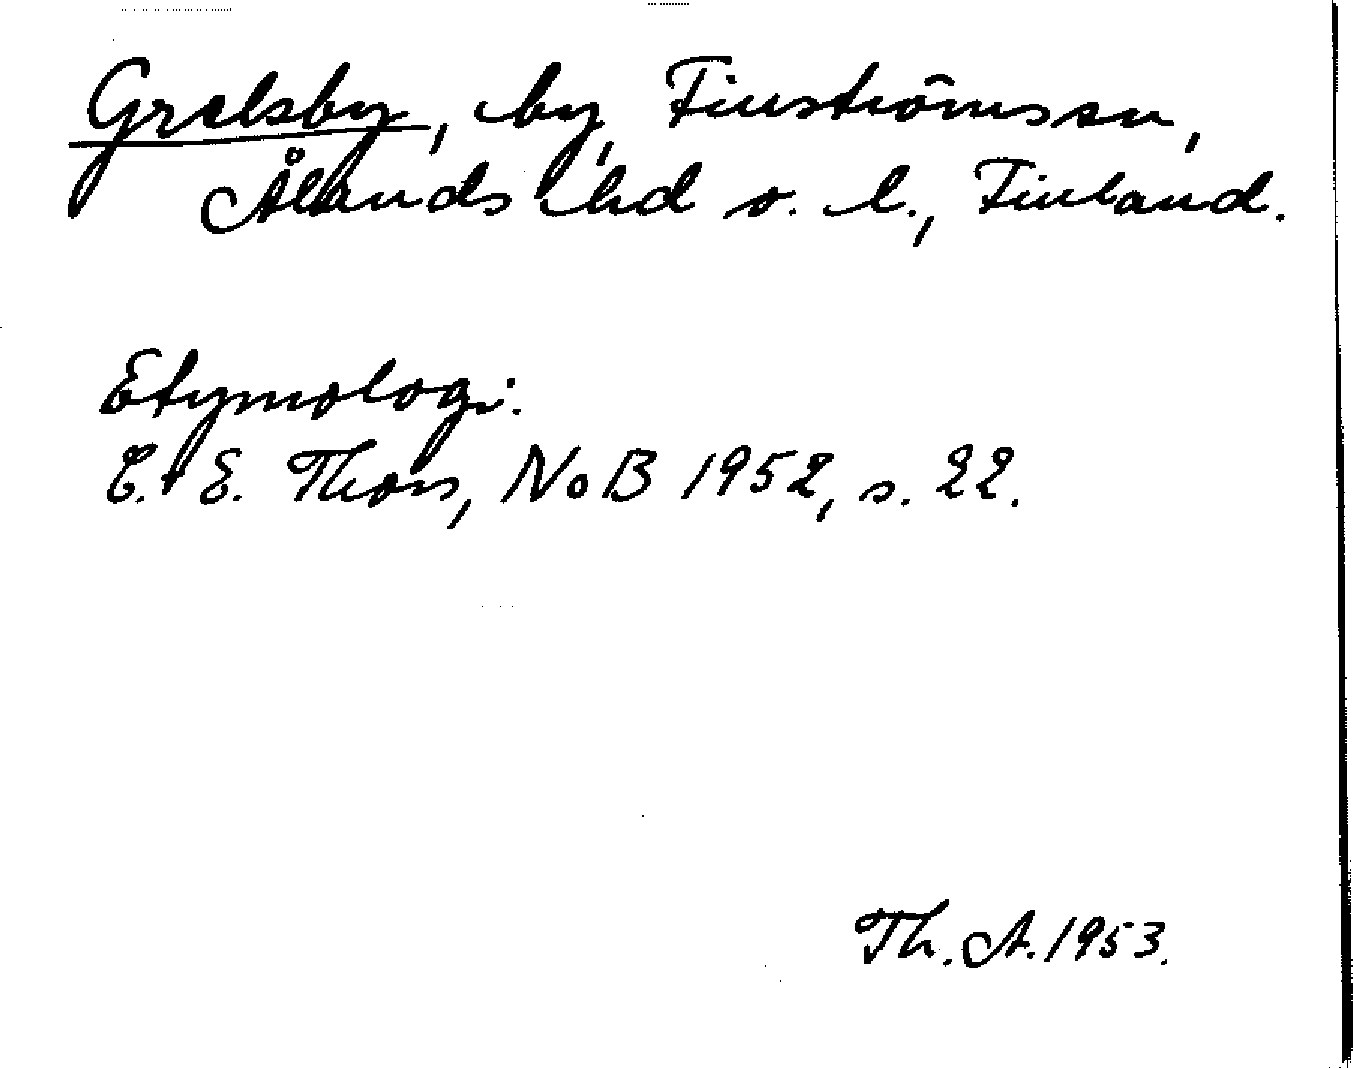 Grelsby, by, Finströms sn,
Ålands hd o. l., Finland.
Etymologi:
C.-E. Thors, NoB 1952, s. 22.
Th. A. 1953.